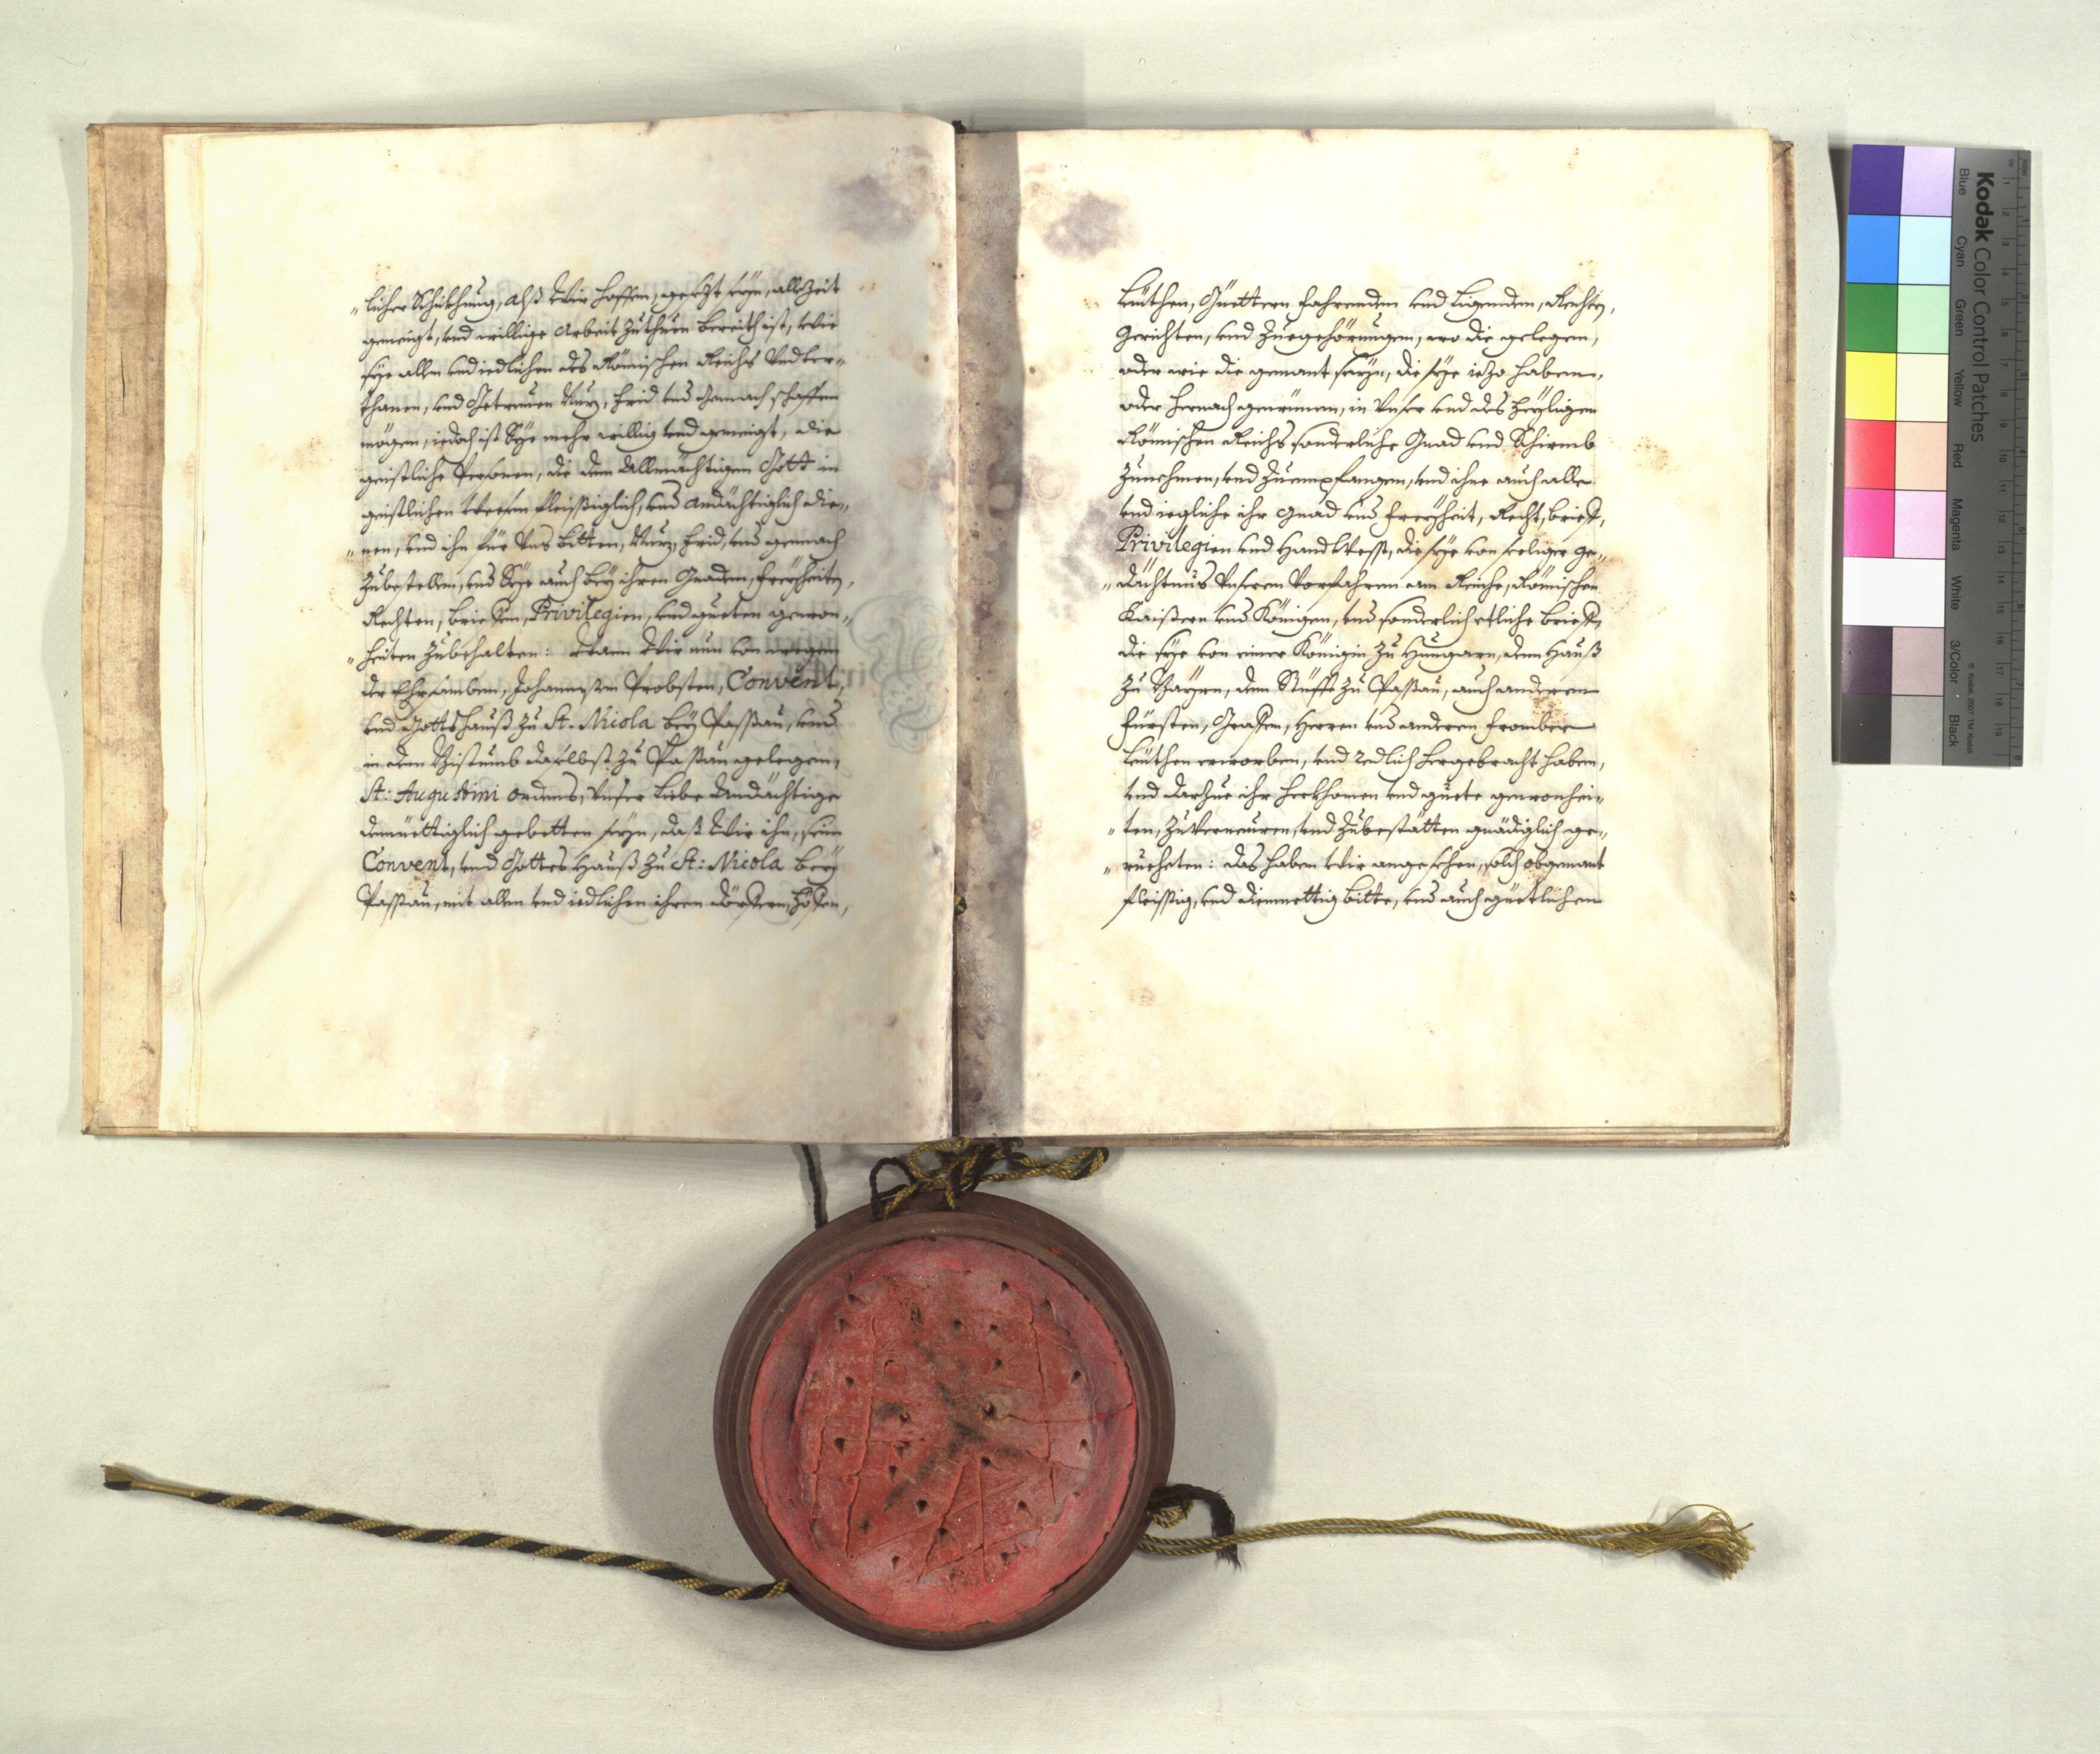 "licher Schikhung, alß Wir hoffen, gesezt seyn, allezeit
geneigt, und willige Arbeit zuthuen bereith ist, wie
sye allen und iedlichen des Römischen Reichs Unter-,
thanen, und Getreuen Nuz, Frid und Gemach schaffen
mögen, iedoch ist Sye mehr willig und geneigt, die
geistliche Persohnen, die dem Allmächtigen Gott in
geistlichen Weesen fleissiglich, und andächtiglich die-,
"nen, und ihn für Uns bitten, Nuz, Frid, und gemach
zubestellen, und Sye auch bey ihren Gnaden, Freyheiten,
Rechten, brieffen, Privilegien, und gueten gewon-,
"heiten zubehalten: Wann Wir nun von wegen
der Ehrsamben, Johannsen Probsten, Convent,
und Gottshauß zu St. Nicola bey Passau, und
in dem Bistumb daselbst zu Passau gelegen,
St: Augustini ordens, Unser liebe Andächtige
demüettiglich gebetten seyn, daß Wir ihn, sein
Convent, und Gottes Hauß zu St: Nicola bey
Passau, mit allen und iedlichen ihren dörfern, höfen,
Leüthen, Güettern fahrenden und ligenden, Rechten,
Gerichten, und Zuegehörungen, wo die gelegen,
oder wie die genant seyn, die sye iezo haben,
oder hernach gewinnen, in Unser und des Heyligen
Römischen Reichs sonderliche Gnad und Schirmb
zunehmen, und zuempfangen, und ihne auch alle
und iegliche ihr gnad und Freyheit, Recht, brieff,
Privilegien und Handtvesst, die sye von seeliger ge-,
"dächtnus Unseren Vorfahren am Reiche, Römischen
Kaißern und Königen, und sonderlich etliche brieff,
die sye von einer Königin zu Hungarn, dem Hauß
zu Bayrn, dem Stüfft zu Passau, auch anderen
Fürsten, Graffen, Herren und anderen fromben
Leüthen erworben, und redlich hergebracht haben,
und darzue ihr herkhomen und guete gewonhei-,
"ten, zuVerneuren, und zubestätten gnädiglich ge-,
"rueheten: das haben Wir angesehen, solch obgenant
fleissig, und diemuettig bitte, und auch güetlichen
Kodak Color Control Patches
Blue Cyan Green Yellow Red Magenta White 3/Color Black
© Kodak, 2007 TM: Kodak